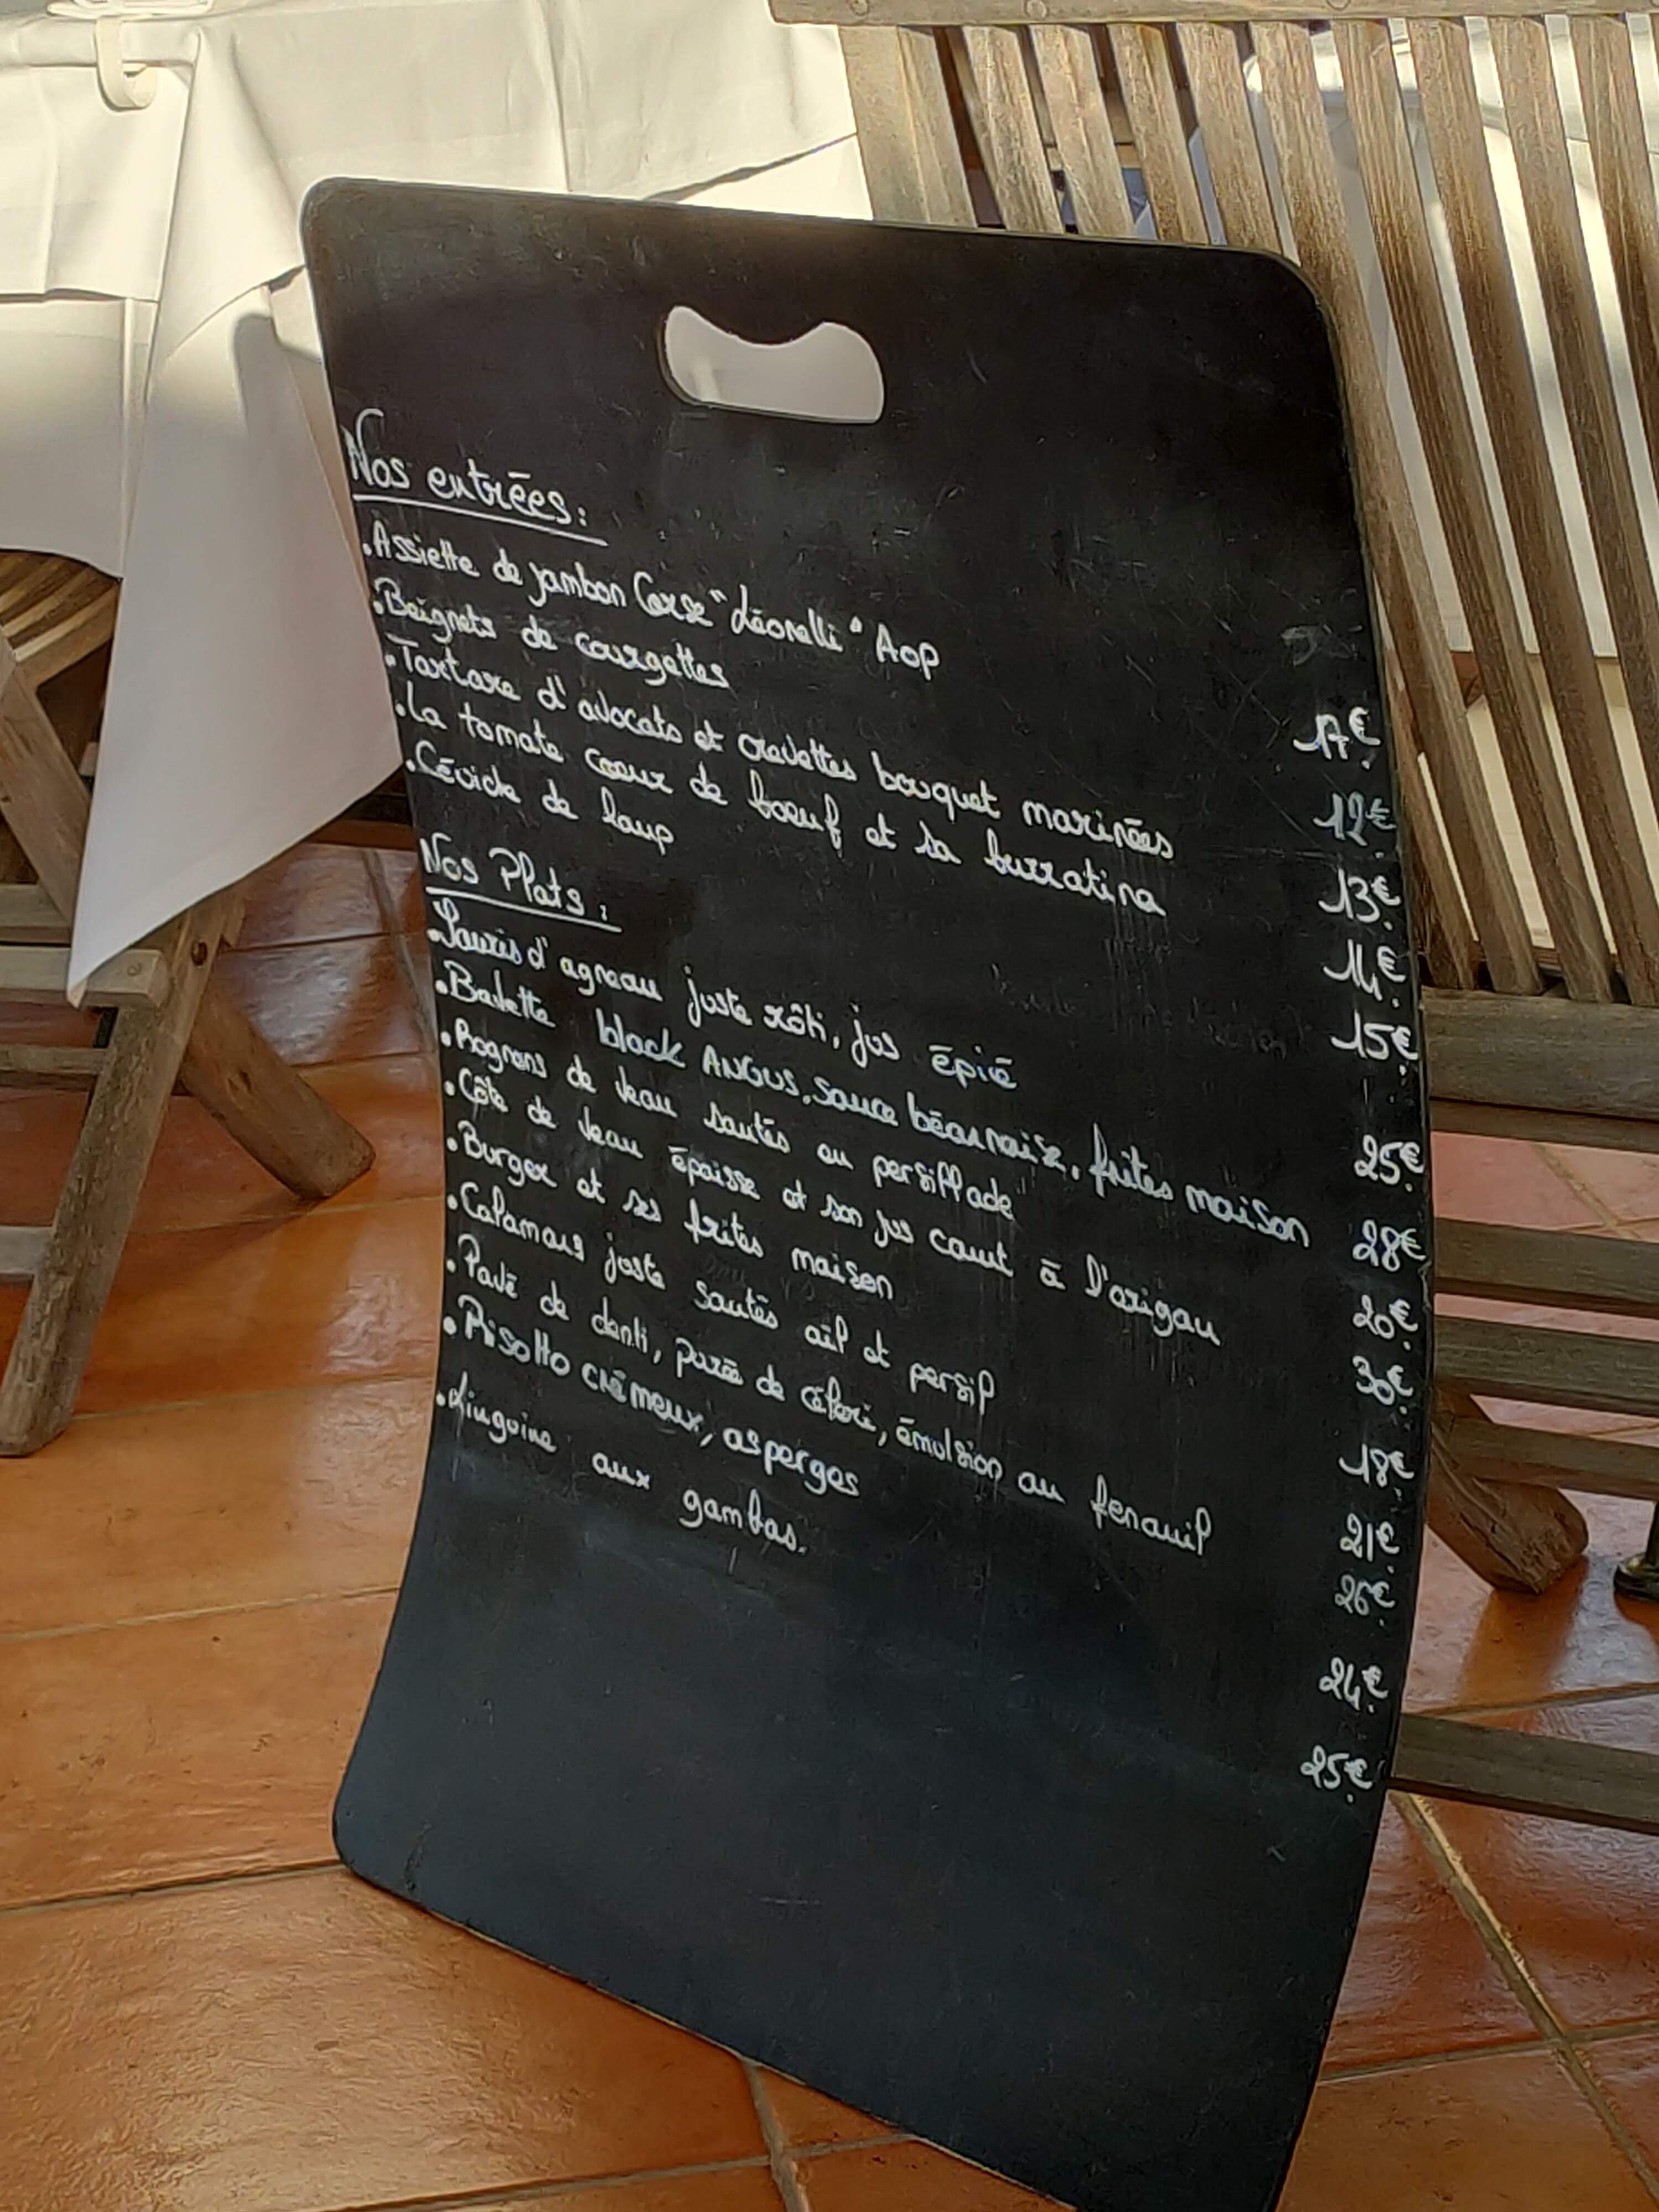 Nos entrées:
.Assiette de jambon Corse "Léonelli" AOP 17€
.Beignets de courgettes 12€
.Tartare d'avocats et crevettes bouquet marinées 13€
.La tomate coeur de boeuf et sa burratina 14€
.Céviche de loup 15€
Nos Plats:
.Souris d'agneau juste rôti, jus épicé 25€
.Bavette black ANGUS, sauce béarnaise, frites maison 28€
.Rognons de veau sautés au persillade 20€
.Côte de veau épaisse et son jus court à l'origan 30€
.Burger et ses frites maison 18€
.Calamars juste sautés ail et persil 21€
.Pavé de denti, purée de céleri, émulsion au fenouil 26€
.Risotto crémeux, asperges 24€
.Linguine aux gambas. 25€